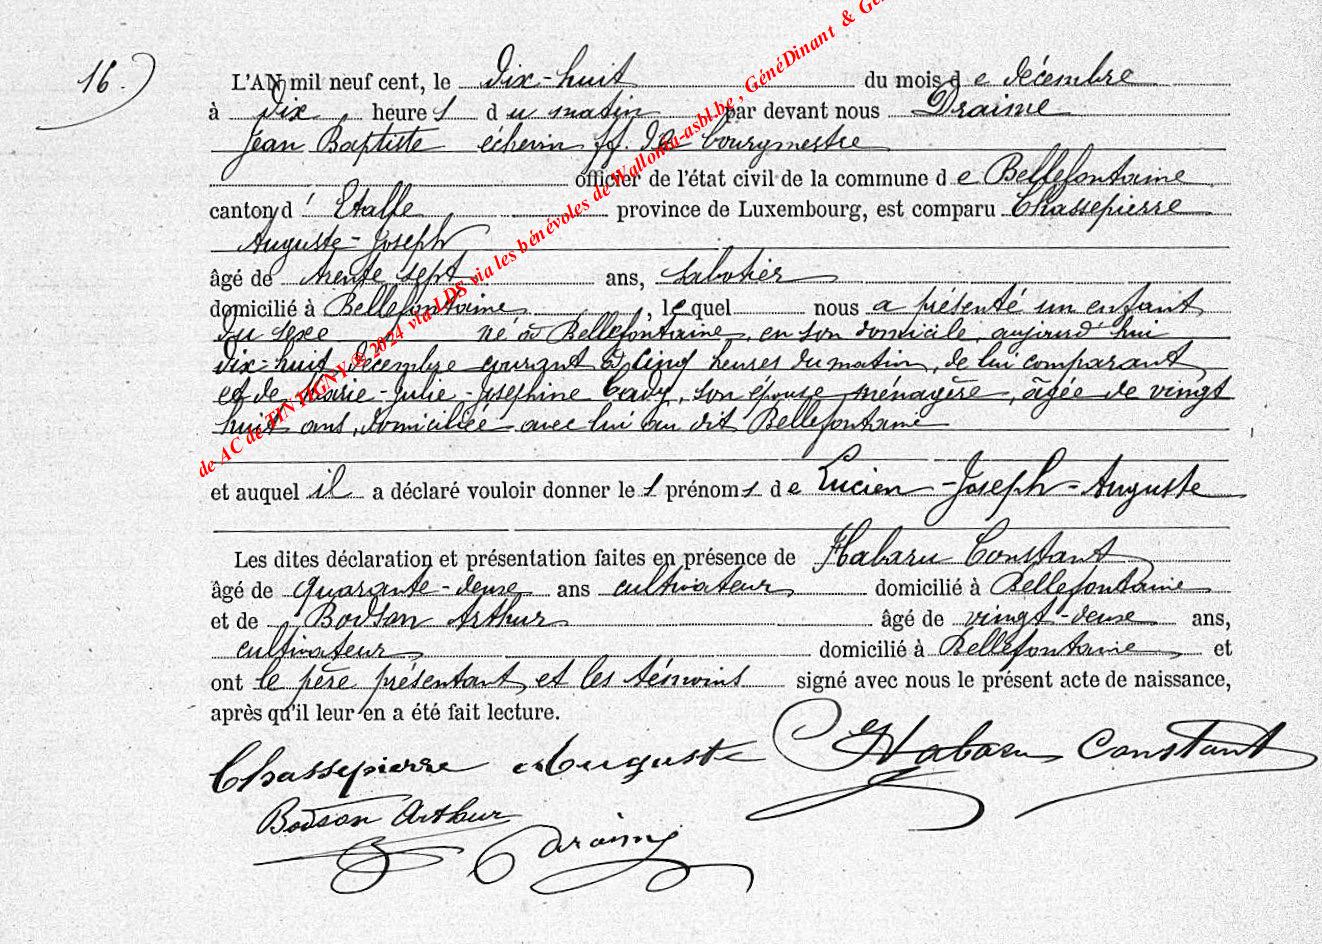 16.)
L'AN mil neuf cent, le dix-huit du mois de décembre
à dix heures du matin par devant nous Draime
Jean Baptiste échevin ff. de bourgmestre
officier de l'état civil de la commune de Bellefontaine
canton d'Etalle province de Luxembourg, est comparu Chassepierre
Auguste-Joseph
âgé de trente sept ans, sabotier
domicilié à Bellefontaine, lequel nous a présenté un enfant
du sexe né à Bellefontaine, en son domicile, aujourd'hui
dix-huit décembre courant à cinq heures du matin, de lui comparant
et de Marie-Julie-Joséphine, son épouse, ménagère, âgée de vingt
huit ans, domiciliée avec lui au dit Bellefontaine
et auquel il a déclaré vouloir donner les prénoms de Lucien-Joseph-Auguste
Les dites déclaration et présentation faites en présence de Habaru Constant
âgé de quarante-deux ans cultivateur domicilié à Bellefontaine
et de Bodson Arthur âgé de vingt-deux ans,
cultivateur domicilié à Bellefontaine et
ont le père présentant et les témoins signé avec nous le présent acte de naissance,
après qu'il leur en a été fait lecture.
Chassepierre Auguste Habaru Constant
Bodson Arthur Draime
de AC de TINTIGNY ® 2024 via LDS via les bénévoles de Wallonia-asbl.be, GénéDinant &